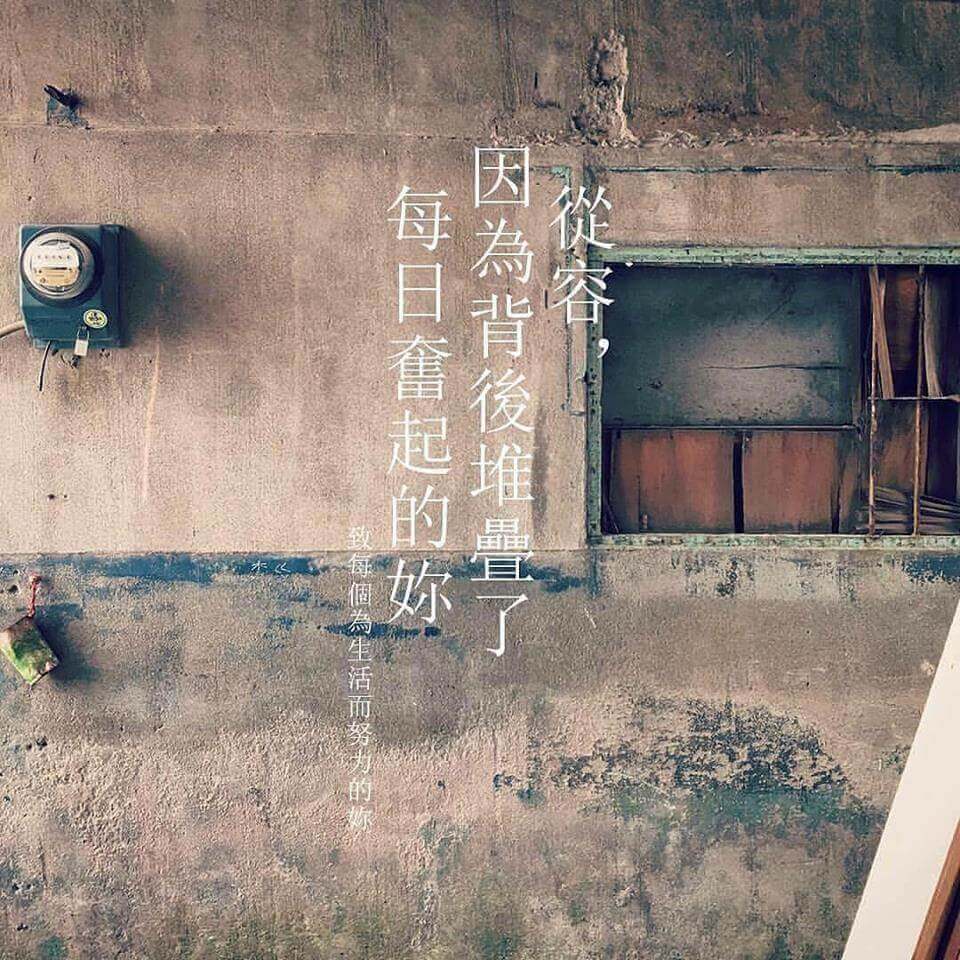 從容，
因為背後堆疊了
每日奮起的妳
致每個為生活而努力的妳